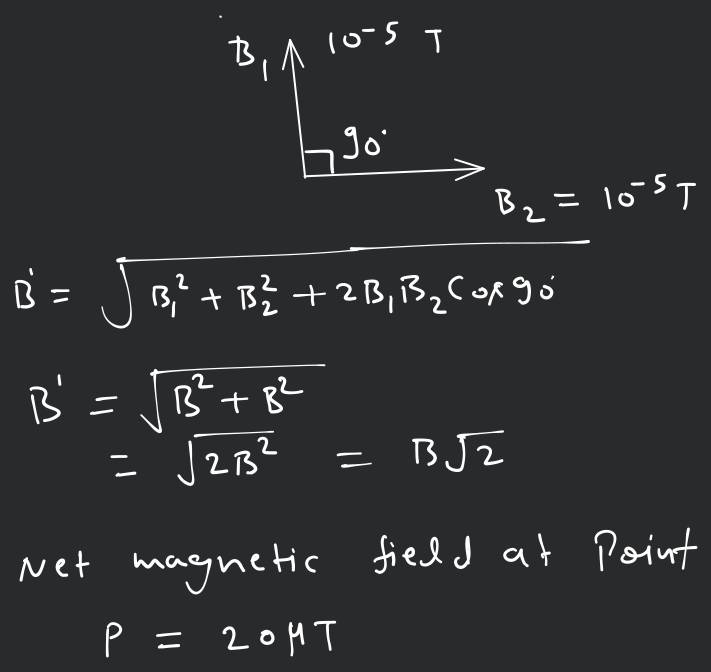 B₁ 10⁻⁵ T
90°
B₂ = 10⁻⁵ T
B' = √(B₁² + B₂² + 2B₁B₂ Cos 90°)
B' = √(B² + B²)
= √(2B²) = B√2
Net magnetic field at Point
P = 20 μT